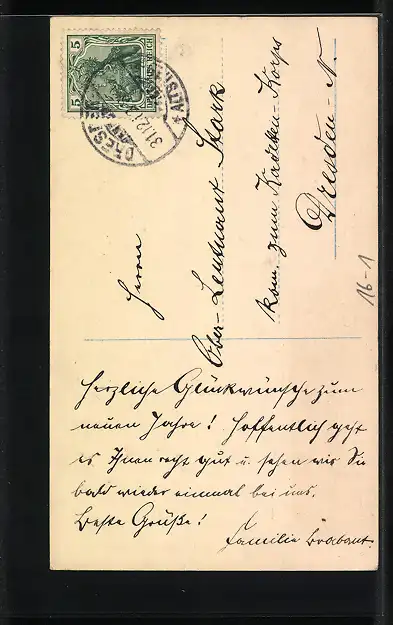 5
5
DEUTSCHES REICH
DRESDEN-ALTST.
31.12.
Herrn
Ober-Leutnant Stark
kom. zum Kadetten-Korps
Dresden-N.
16-1
Herzliche Glückwünsche zum
neuen Jahre! Hoffentlich geht
es Ihnen recht gut u. sehen wir Sie
bald wieder einmal bei uns.
Beste Grüße!
Familie Brabant.